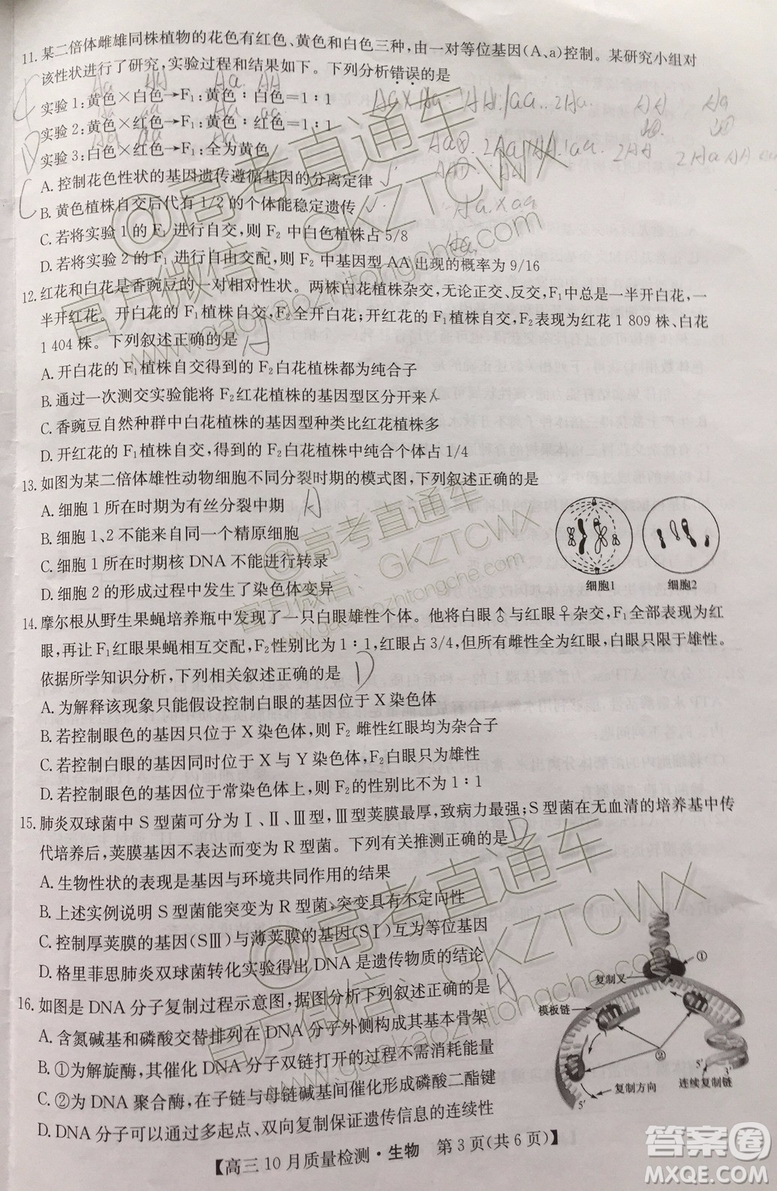 11. 某二倍体雌雄同株植物的花色有红色、黄色和白色三种，由一对等位基因(A、a)控制。某研究小组对
该性状进行了研究，实验过程和结果如下。下列分析错误的是
实验1：黄色×白色→F₁：黄色∶白色=1∶1
实验2：黄色×红色→F₁：黄色∶红色=1∶1
实验3：白色×红色→F₁：全为黄色
A. 控制花色性状的基因遗传遵循基因的分离定律
B. 黄色植株自交后代有1/2的个体能稳定遗传
C. 若将实验1的F₁进行自交，则F₂中白色植株占5/8
D. 若将实验2的F₁进行自由交配，则F₂中基因型AA出现的概率为9/16
12. 红花和白花是香豌豆的一对相对性状。两株白花植株杂交，无论正交、反交，F₁中总是一半开白花，一
半开红花。开白花的F₁植株自交，F₂全开白花；开红花的F₁植株自交，F₂表现为红花1 809株、白花
1 404株。下列叙述正确的是
A. 开白花的F₁植株自交得到的F₂白花植株都为纯合子
B. 通过一次测交实验能将F₂红花植株的基因型区分开来
C. 香豌豆自然种群中白花植株的基因型种类比红花植株多
D. 开红花的F₁植株自交，得到的F₂白花植株中纯合个体占1/4
13. 如图为某二倍体雄性动物细胞不同分裂时期的模式图，下列叙述正确的是
A. 细胞1所在时期为有丝分裂中期
B. 细胞1、2不能来自同一个精原细胞
C. 细胞1所在时期核DNA不能进行转录
D. 细胞2的形成过程中发生了染色体变异
细胞1 细胞2
14. 摩尔根从野生果蝇培养瓶中发现了一只白眼雄性个体。他将白眼♂与红眼♀杂交，F₁全部表现为红
眼，再让F₁红眼果蝇相互交配，F₂性别比为1∶1，红眼占3/4，但所有雌性全为红眼，白眼只限于雄性。
依据所学知识分析，下列相关叙述正确的是
A. 为解释该现象只能假设控制白眼的基因位于X染色体
B. 若控制白眼的基因只位于X染色体，则F₂雌性红眼均为杂合子
C. 若控制白眼的基因同时位于X与Y染色体，F₂白眼只为雄性
D. 若控制白眼的基因位于常染色体上，则F₂的性别比不为1∶1
15. 肺炎双球菌中S型菌可分为Ⅰ、Ⅱ、Ⅲ型，Ⅲ型荚膜最厚，致病力最强；S型菌在无血清的培养基中传
代培养后，荚膜基因不表达而变为R型菌。下列有关推测正确的是
A. 生物性状的表现是基因与环境共同作用的结果
B. 上述实例说明S型菌能突变为R型菌，突变具有不定向性
C. 控制厚荚膜的基因(SⅢ)与薄荚膜的基因(SⅡ)互为等位基因
D. 格里菲思肺炎双球菌转化实验得出DNA是遗传物质的结论
16. 如图是DNA分子复制过程示意图，据图分析下列叙述正确的是
A. 含氮碱基和磷酸交替排列在DNA分子外侧构成基本骨架
B. ①为解旋酶，其催化DNA分子双链打开的过程不需消耗能量
C. ②为DNA聚合酶，在脱氧核苷酸间催化形成磷酸二酯键
D. DNA分子可以通过多起点、双向复制保证遗传信息的长期稳定
① 复制叉
模板链
②
5′ 3′
复制方向 连续复制链
【高三10月质量检测·生物 第3页(共6页)】
@高考直通车
官方微信：GKZTCWX
www.gaokaozhitongche.com
答案卷
MXQE.COM